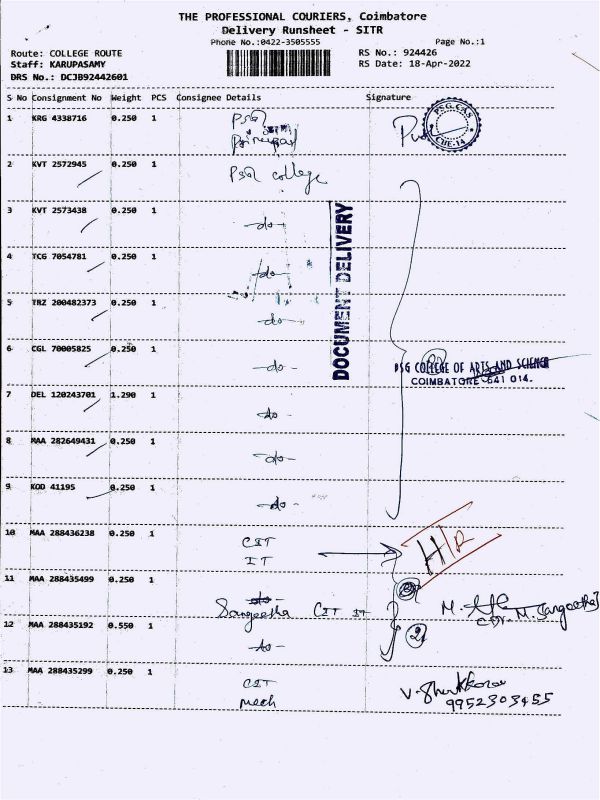 THE PROFESSIONAL COURIERS, Coimbatore
Delivery Runsheet - SITR
Phone No.:0422-3505555 Page No.:1
Route: COLLEGE ROUTE RS No.: 924426
Staff: KARUPASAMY RS Date: 18-Apr-2022
DRS No.: DCJB92442601
S No Consignment No Weight PCS Consignee Details Signature
1 KRG 4338716 0.250 1 PSG
Principal
PSG CAS
CBE-14
2 KVT 2572945 0.250 1 PSG college
3 KVT 2573438 0.250 1 -do-
DOCUMENT DELIVERY
4 TCG 7054781 0.250 1 -do-
5 TRZ 200482373 0.250 1 -do-
6 CGL 70005825 0.250 1 -do-
PSG COLLEGE OF ARTS AND SCIENCE
COIMBATORE-641 014.
7 DEL 120243701 1.290 1 -do-
8 MAA 282649431 0.250 1 -do-
9 KOD 41195 0.250 1 -do-
10 MAA 288436238 0.250 1 CIT
IT
H/R
11 MAA 288435499 0.250 1 -do-
Sangeetha CIT IT
M. Sangeetha
12 MAA 288435192 0.550 1 -do- 2
13 MAA 288435299 0.250 1 CIT
Mech
9952303455